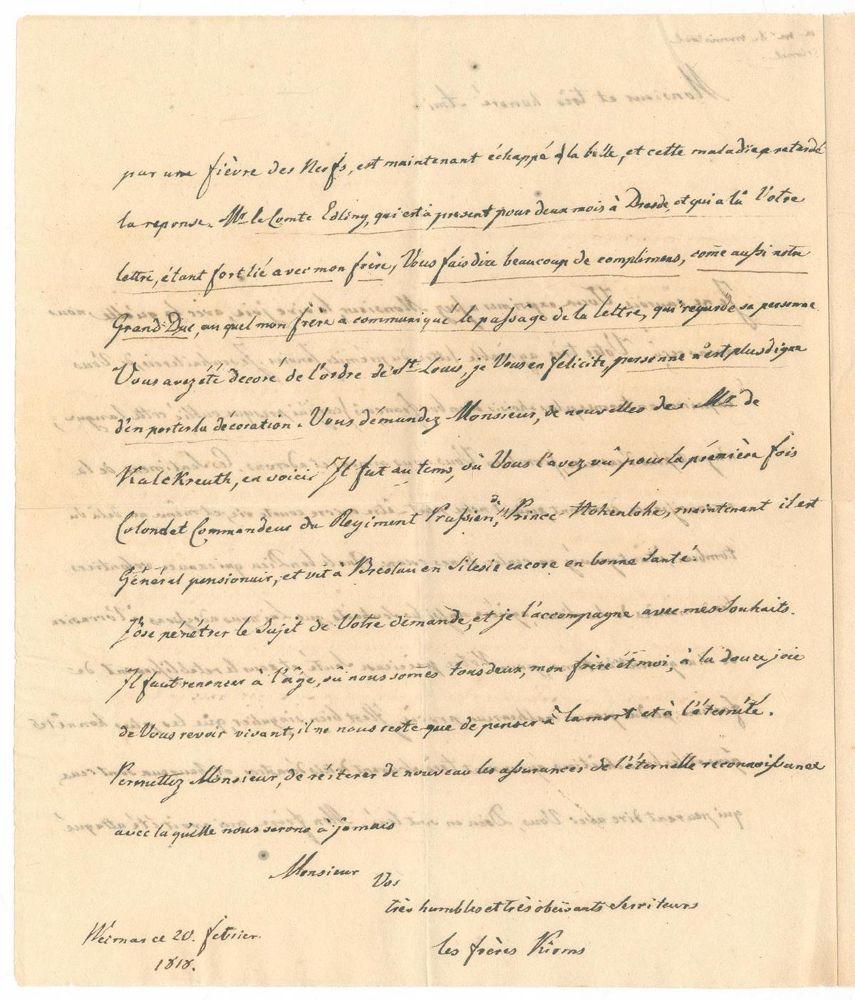 par une fièvre des Nerfs, est maintenant échappé à la belle, et cette maladie a retardé
la reponse. Mr. le Comte Edling, qui est à present pour deux mois à Dresde, et qui a lû Votre
lettre, étant fort lié avec mon frère, Vous fais dire beaucoup de complimens, come aussi notre
Grand-Duc, au quel mon frère a communiqué le passage de la lettre, qui regarde sa personne.
Vous avez été decoré de l'ordre de St. Louis, je Vous en felicite, personne n'est plus digne
d'en porter la décoration. Vous démandez Monsieur, de nouvelles des Mr. de
Kalckreuth, en voici: Il fut au tems, où Vous l'avez vû pour la prémière fois
Colonel et Commandeur du Regiment Prussien, de Prince Hohenlohe, maintenant il est
Général pensionair, et vit à Breslau en Silesie encore en bonne Santé.
J'ose penétrer le Sujet de Votre démande, et je l'accompagne avec mes souhaits.
Il faut renoncer à l'âge, où nous somes tous deux, mon frère et moi, à la douce joie
de Vous revoir vivant, il ne nous reste que de penser à la mort et à l'éternité.
Permettez Monsieur, de réiterer de nouveau les assurances de l'éternelle reconnoissance
avec laquelle nous serons à jamais
Monsieur
Vos
très humbles et très obeïsants Serviteurs
les frères
Weimar ce 20. fevrier
1818.